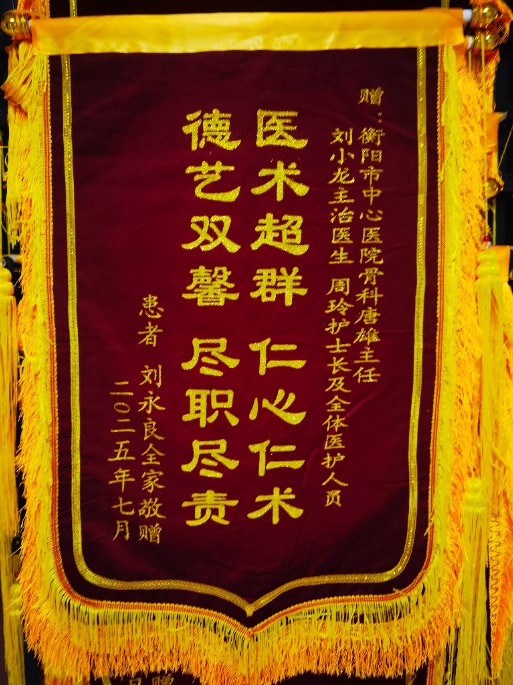 赠：衡阳市中心医院骨科唐雄主任
刘小龙主治医生 周玲护士长及全体医护人员
医术超群 仁心仁术
德艺双馨 尽职尽责
患者 刘永良全家敬赠
二〇二五年七月